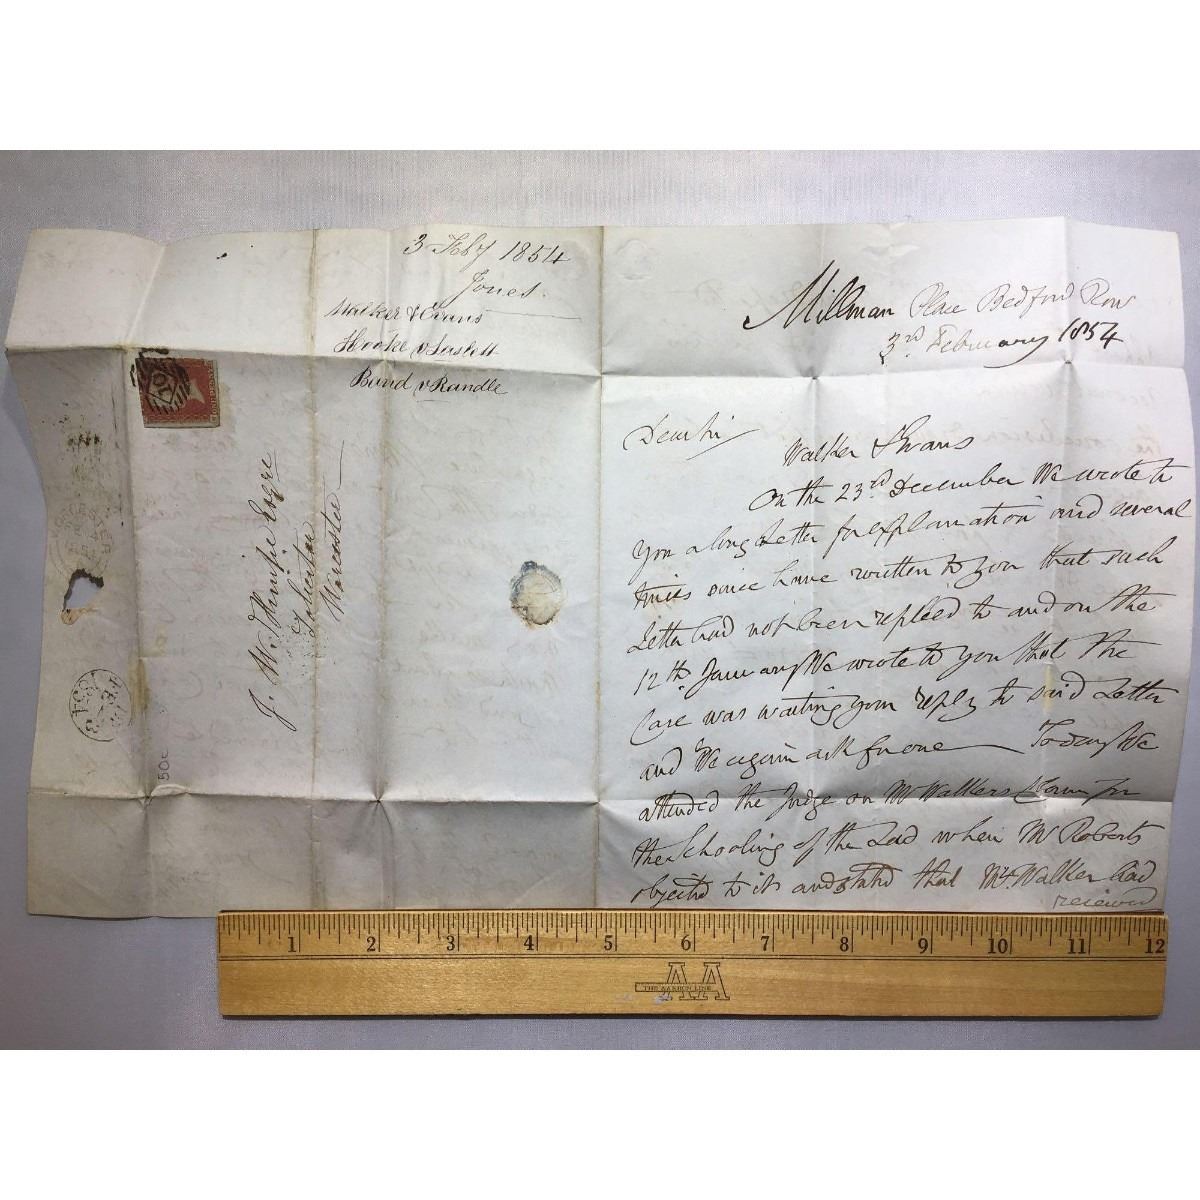 3 Feby 1854
Jones.
Walker & Evans
Hooke v Laslett
Band v Randle
J. W. Esqre
Worcester
50c
Millman Place Bedford Row
3rd February 1854
Dear Sir
Walker & Evans
On the 23rd December We wrote to
You a long Letter for explanation and several
times since have written to you that such
Letter had not been replied to and on the
12th January We wrote to you that the
Case was waiting your reply to said Letter
and We again ask for one — To day We
attended the Judge on Mr Walkers Claim for
the Schooling of the Lad when Mr Roberts
objected to it and stated that Mr Walker had
received
1 2 3 4 5 6 7 8 9 10 11 12
THE AKRON LINE